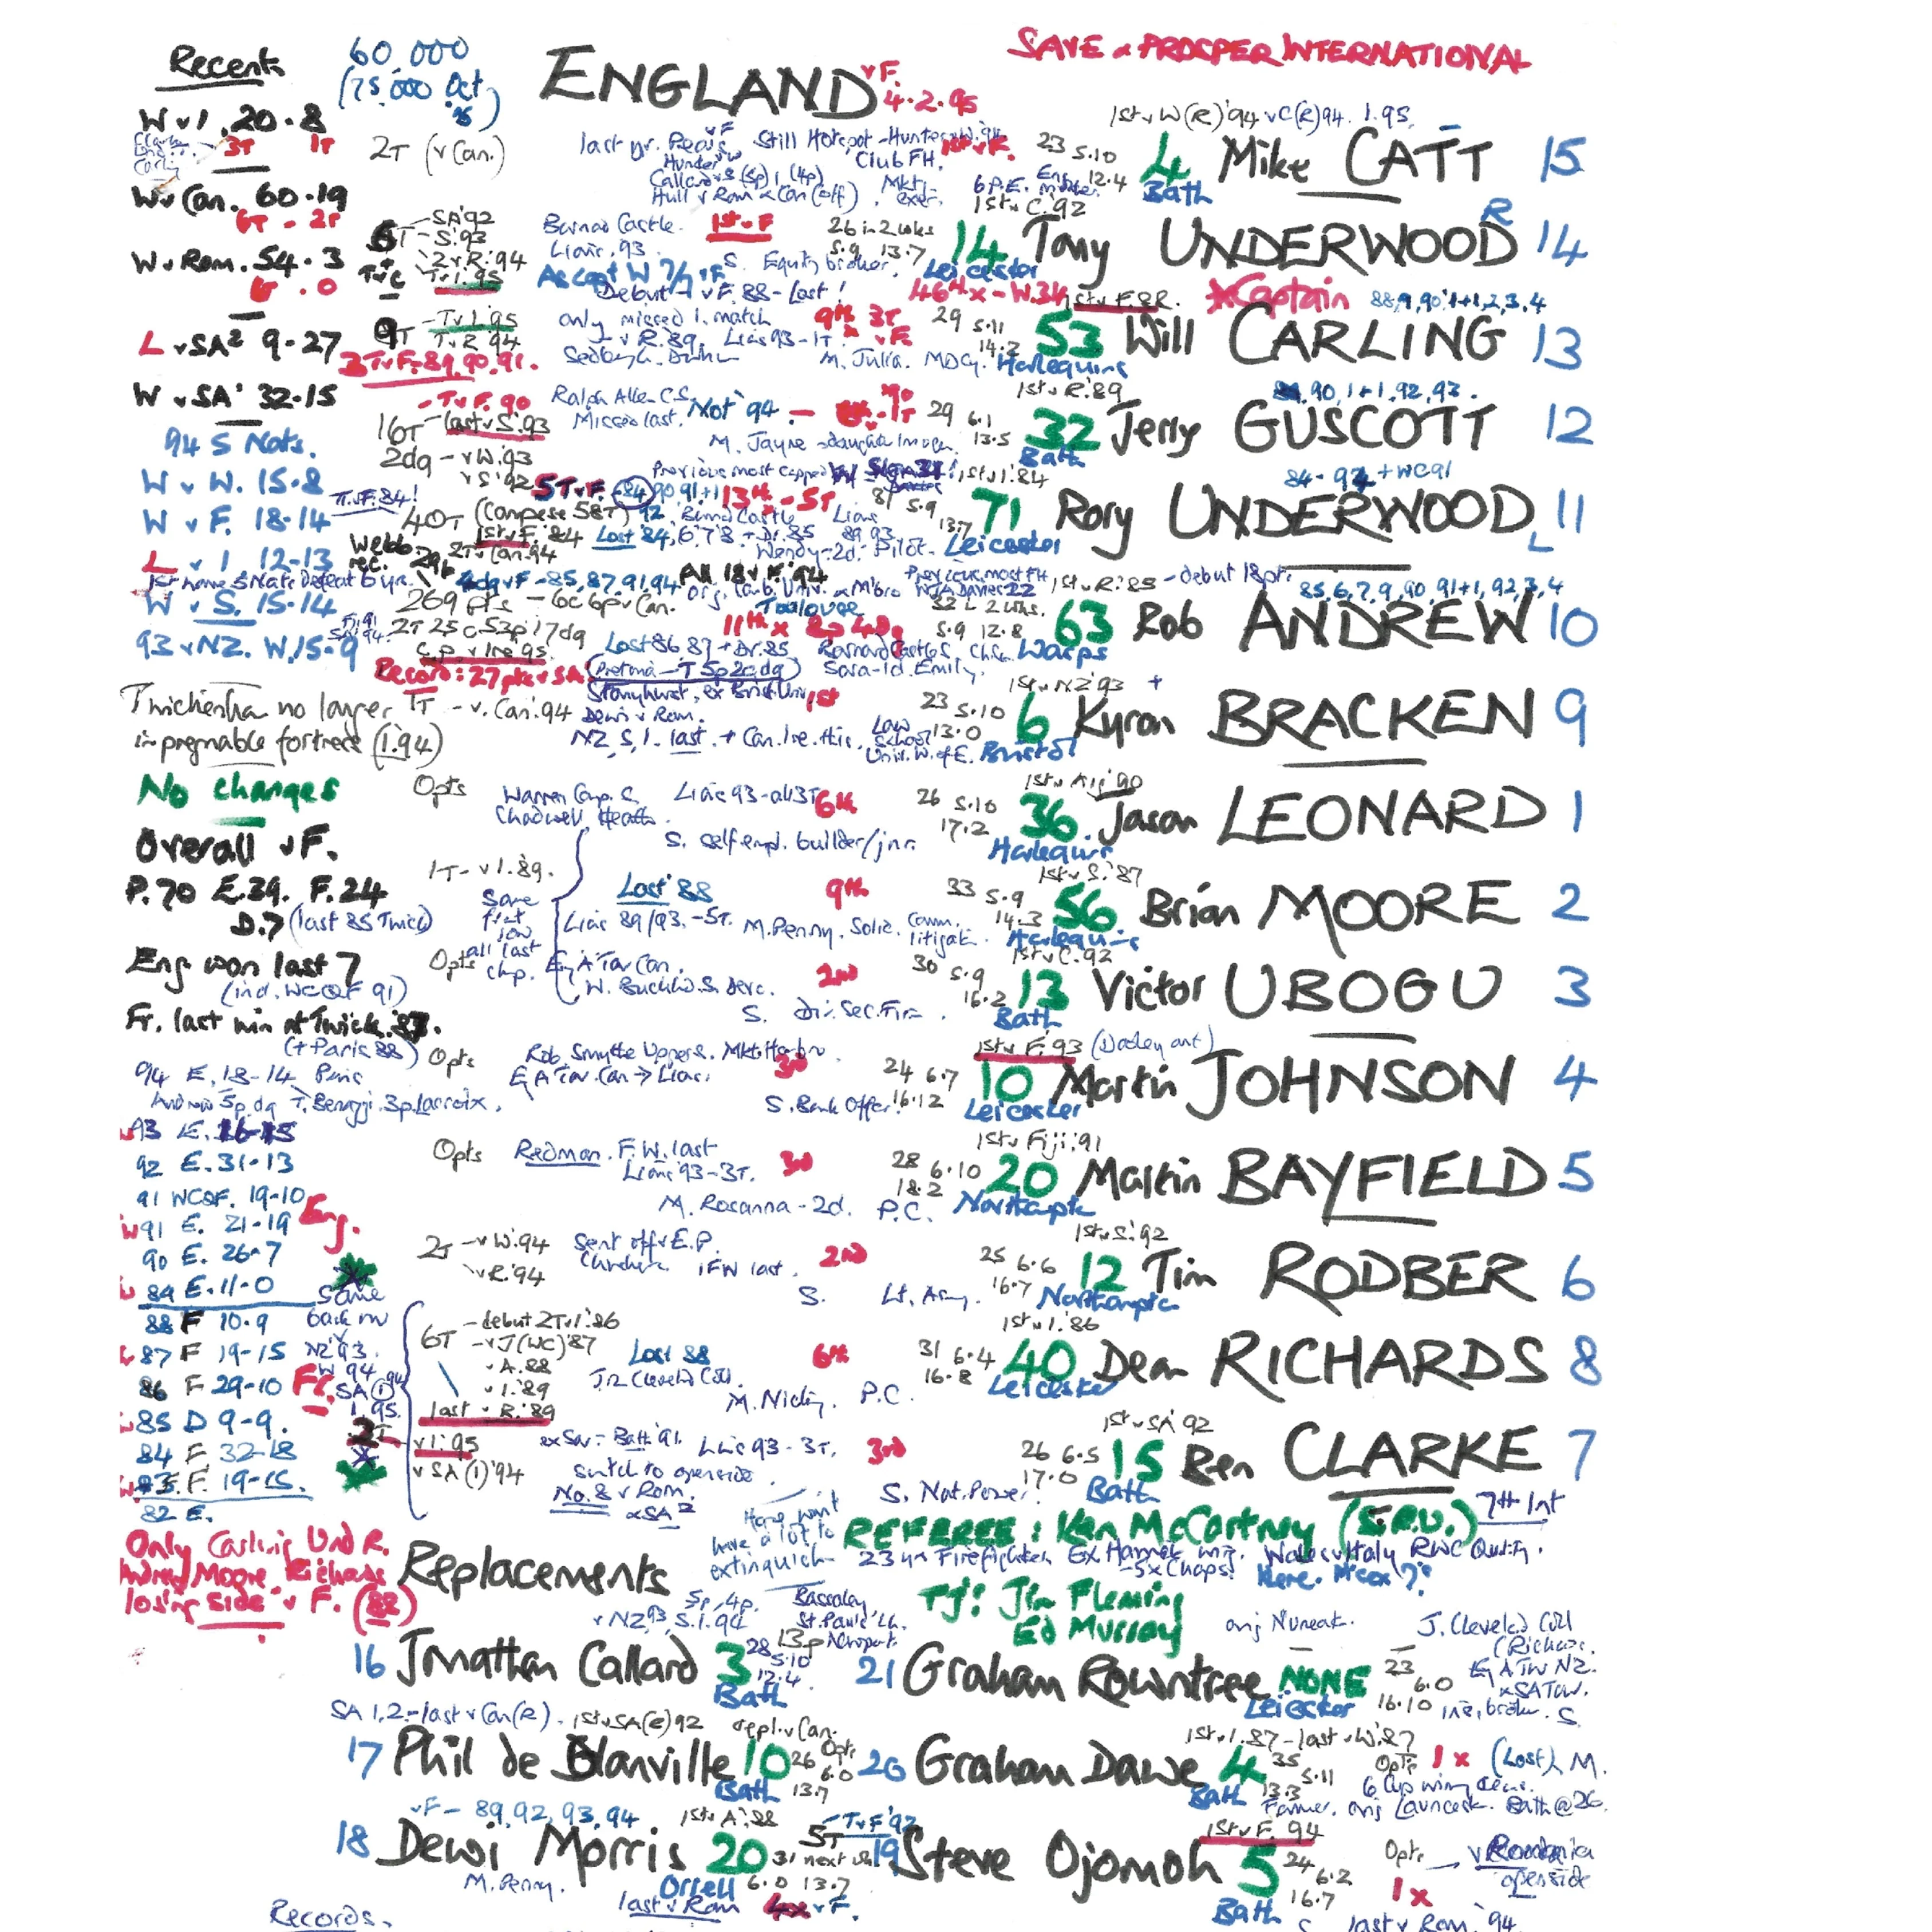 Recents
60,000
(75,000 Oct
ENGLAND v F.
4.2.95
SAVE & PROSPER INTERNATIONAL
W v I. 20.8
3T 1T
2T (v Can.)
W v Can. 60.19
6T - 2T
W v Rom. 54.3
6T . 0
L v SA² 9-27
W v SA' 32-15
94 5 Nats.
W v W. 15-8
W v F. 18-14
L v I 12-13
W v S. 15-14
93 v NZ. W. 15-9
Twickenham no longer
impregnable fortress (I.94)
No changes
Overall v F.
P.70 E.39. F.24
D.7 (last 85 Twick)
Eng won last 7
(incl. WCQF 91)
Fr. last win at Twick. 87.
(+ Paris 88)
94 E. 18-14 Paris
Andrew 5p.dg T. Benazzi. 3p. Lacroix.
93 E. 16-15
92 E. 31-13
91 WCQF. 19-10
91 E. 21-19
Eng.
90 E. 26-7
89 E. 11-0
88 F 10.9
87 F 19-15
86 F 29-10
Fr.
85 D 9-9.
84 F 32-18
83. F. 19-15.
82 E.
Same
back row
NZ'93
W 94
SA(1)94
I.95.
Only Carling Und R.
Andrew Moore Richards
losing side v F. (88)
1st v W(R)'94 v C(R)94. I.95.
23 5.10
12.4
4 Mike CATT 15
Bath
Still Hotspot - Hunter v W.'94
Club FH.
Hull v Rom & Can (off)
1st v C.'92
SA'92
S.93
2 v R.'94
T v I.95
Barnard Castle.
Lions 93.
1st v F
26 in 2 wks
5.9 13.7
S. Equity broker.
14 Tony UNDERWOOD R 14
Leicester
Debut v F. 88 - Lost!
1st v F. 88.
Captain 88,9,90,1+1,2,3,4
T v I.95
T v R 94
3T v F. 89. 90. 91.
only missed 1. match
v R. 89. Lions 93-1T
9th 3T v F
29 5.11
14.2
M. Julia.
53 Will CARLING 13
Harlequins
1st v R.'89
89. 90, 1+1, 92, 93.
T v F. 90
16T last v S.93
2dg - v W.93
v S'92
Ralph Allen C.S.
Missed last. Not 94
29 6.1
13.5
M. Jayne
32 Jerry GUSCOTT 12
Bath
1st v I. 84
84-92 + WC91
T v F. 84!
40T (Campese 58T)
5T v F.
1st v F. 84
2T v Can. 94
13th - 5T
31 5.9
13.7
Wendy-2d. Pilot.
71 Rory UNDERWOOD L 11
Leicester
1st v R.'85 - debut 18pt.
85,6,7,9,90,91+1,92,3,4
Webb
rec. 296
2dg v F - 85,87,91,94
269 pts - 6c 6p v Can.
2T 25c 53p 17dg
Record: 27 pts v SA
(Pretoria - T 5p 2c dg)
Toulouse
11th x
Lost 86 87 + Dr. 85
Sara-1d. Emily.
5.9 12.8
63 Rob ANDREW 10
Wasps
1st v NZ'93 +
1T - v. Can.'94
Stonyhurst, ex Brist. Univ.
1st
Dewi v Rom.
NZ, S, I. last. + Can. Ire. this.
Law School
Univ. W. of E.
23 5.10
13.0
6 Kyran BRACKEN 9
Bristol
1st v Arg.'90
Opts
Warren Comp. S.
Chadwell Heath.
Lions 93 - all 3T
6th
S. self empl. builder/jnr.
26 5.10
17.2
36 Jason LEONARD 1
Harlequins
1st v S.'87
1T - v I.89.
Same
front
row
all last
chp.
Lost 88
Lions 89/93. -5T.
9th
M. Penny. Solic. Comm.
litigat.
33 5.9
14.3
56 Brian MOORE 2
Harlequins
1st v C.92
Opts
Eng A Tour Can.
2nd
S. Dir. Sec. Firm.
30 5.9
16.2
13 Victor UBOGU 3
Bath
1st v F.93 (Dooley out)
Opts
Rob. Smythe Upper S. Mkt. Harbro.
Eng A Tour. Can → Lions
3rd
S. Bank Offer.
24 6.7
16.12
10 Martin JOHNSON 4
Leicester
1st v Fiji. 91
Opts
Redman. F.W. last
Lions '93-3T.
3rd
M. Rosanna - 2d. P.C.
28 6.10
18.2
20 Martin BAYFIELD 5
Northampt
1st v S.'92
2T - v W.94
v R.'94
Sent off v E.P.
2nd
S. Lt. Army.
25 6.6
16.7
12 Tim RODBER 6
Northampton
1st v I.'86
6T - debut 2T v I.'86
- v J (WC)'87
v A.88
v I.'89
last v R.'89
Lost 88
J.R. Cleveland Coll.
6th
M. Nicky. P.C.
31 6.4
16.8
40 Dean RICHARDS 8
Leicester
1st v SA'92
2T
v I.95
v SA(1)'94
ex Sar - Bath 91. Lions 93-3T.
switch to openside.
No. 8 v Rom.
& SA²
3rd
S. Nat. Power.
26 6.5
17.0
15 Ben CLARKE 7
Bath
have a lot to
extinguish
REFEREE: Ken McCartney (S.R.U.) 7th Int
23 yr Firefighter.
Wales v Italy RWC Qualif.
TJ: Jim Fleming
Ed Murray
Replacements
v NZ 93, S. I. 94
Bassaleg
16 Jonathan Callard 3
Bath
28 5.10
12.4
SA 1,2 - last v Can(R). 1st v SA(2)92
repl. v Can.
17 Phil de Glanville 10
Bath
26 6.0
13.7
v F - 89, 92, 93, 94
1st v A.'88
5T T v F'92
18 Dewi Morris 20
Orrell
31 next wk
6.0 13.7
M. Penny.
last v Rom
4x v F.
orig Nuneat.
J. Cleveland Coll
(Richards.
21 Graham Rowntree NONE
Leicester
23 6.0
16.10
Ins. broker. S.
1st v I. 87 - last v W.'87
20 Graham Dawe 4
Bath
35 5.11
13.3
Opts 1x (Lost) M.
6 Cup winning teams.
Farmer. orig Launcest. Bath @ 26.
1st v F. 94
19 Steve Ojomoh 5
Bath
24 6.2
16.7
Opts
v Romania
openside
1x
S. last v Rom.'94.
Records.